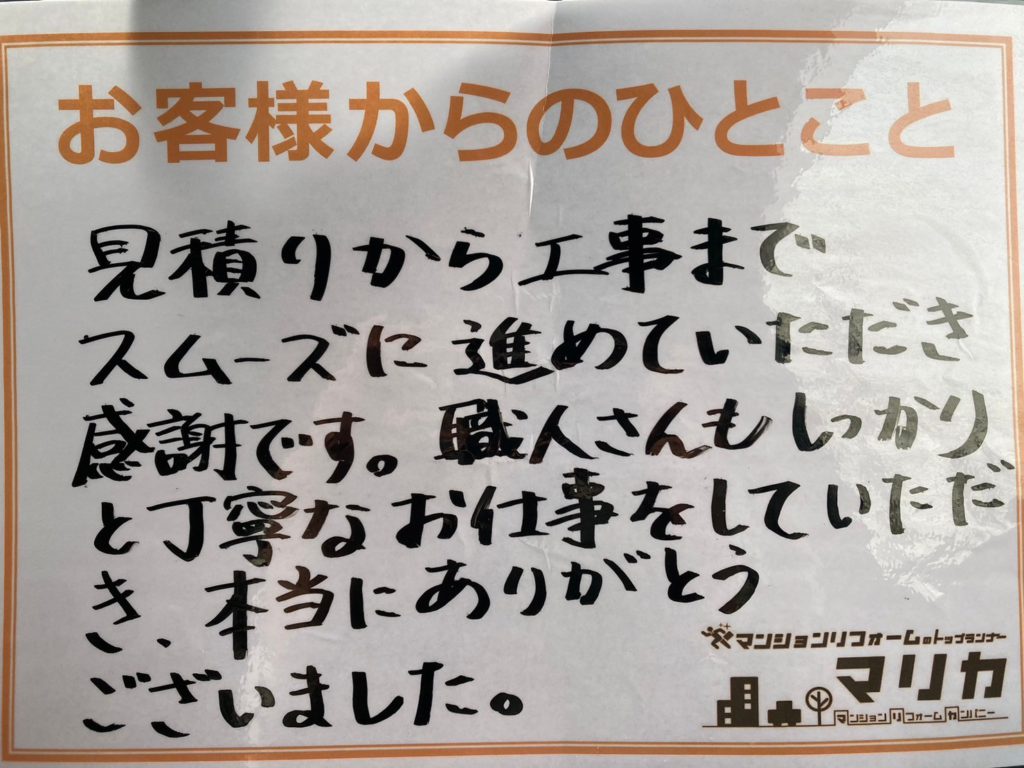 お客様からのひとこと
見積りから工事まで
スムーズに進めていただき
感謝です。職人さんもしっかり
と丁寧なお仕事をしていただ
き、本当にありがとう
ございました。
マンションリフォームのトップランナー
マリカ
マンションリフォームカンパニー